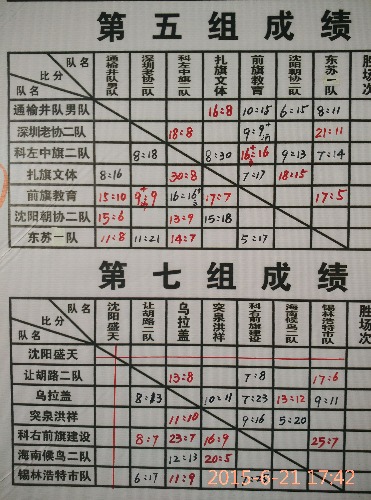 第五组成绩
队名 比分 队名 通榆井队男队 深圳老协二队 科左中旗二队 扎旗文体 前旗教育 沈阳朝协二队 东苏一队 胜场
通榆井队男队 16:8 10:15 6:15 8:11
深圳老协二队 18:8 9:9 21:11
科左中旗二队 8:18 8:30 16:16 9:13 7:14
扎旗文体 8:16 30:8 7:17 18:15
前旗教育 15:10 9:9 16:16 17:7 17:5
沈阳朝协二队 15:6 13:9 15:18
东苏一队 11:8 11:21 14:7 5:17
第七组成绩
队名 比分 队名 沈阳盛天 让胡路二队 乌拉盖 突泉洪祥 科右前旗建设 海南候鸟二队 锡林浩特市队 胜场次
沈阳盛天
让胡路二队 13:8 7:8 17:6
乌拉盖 8:13 10:11 7:23 13:12 9:11
突泉洪祥 11:10 9:16 5:20
科右前旗建设 8:7 23:7 16:9 25:7
海南候鸟二队 12:13 20:5
锡林浩特市队 6:17 11:9 7:25
2015-6-21 17:42